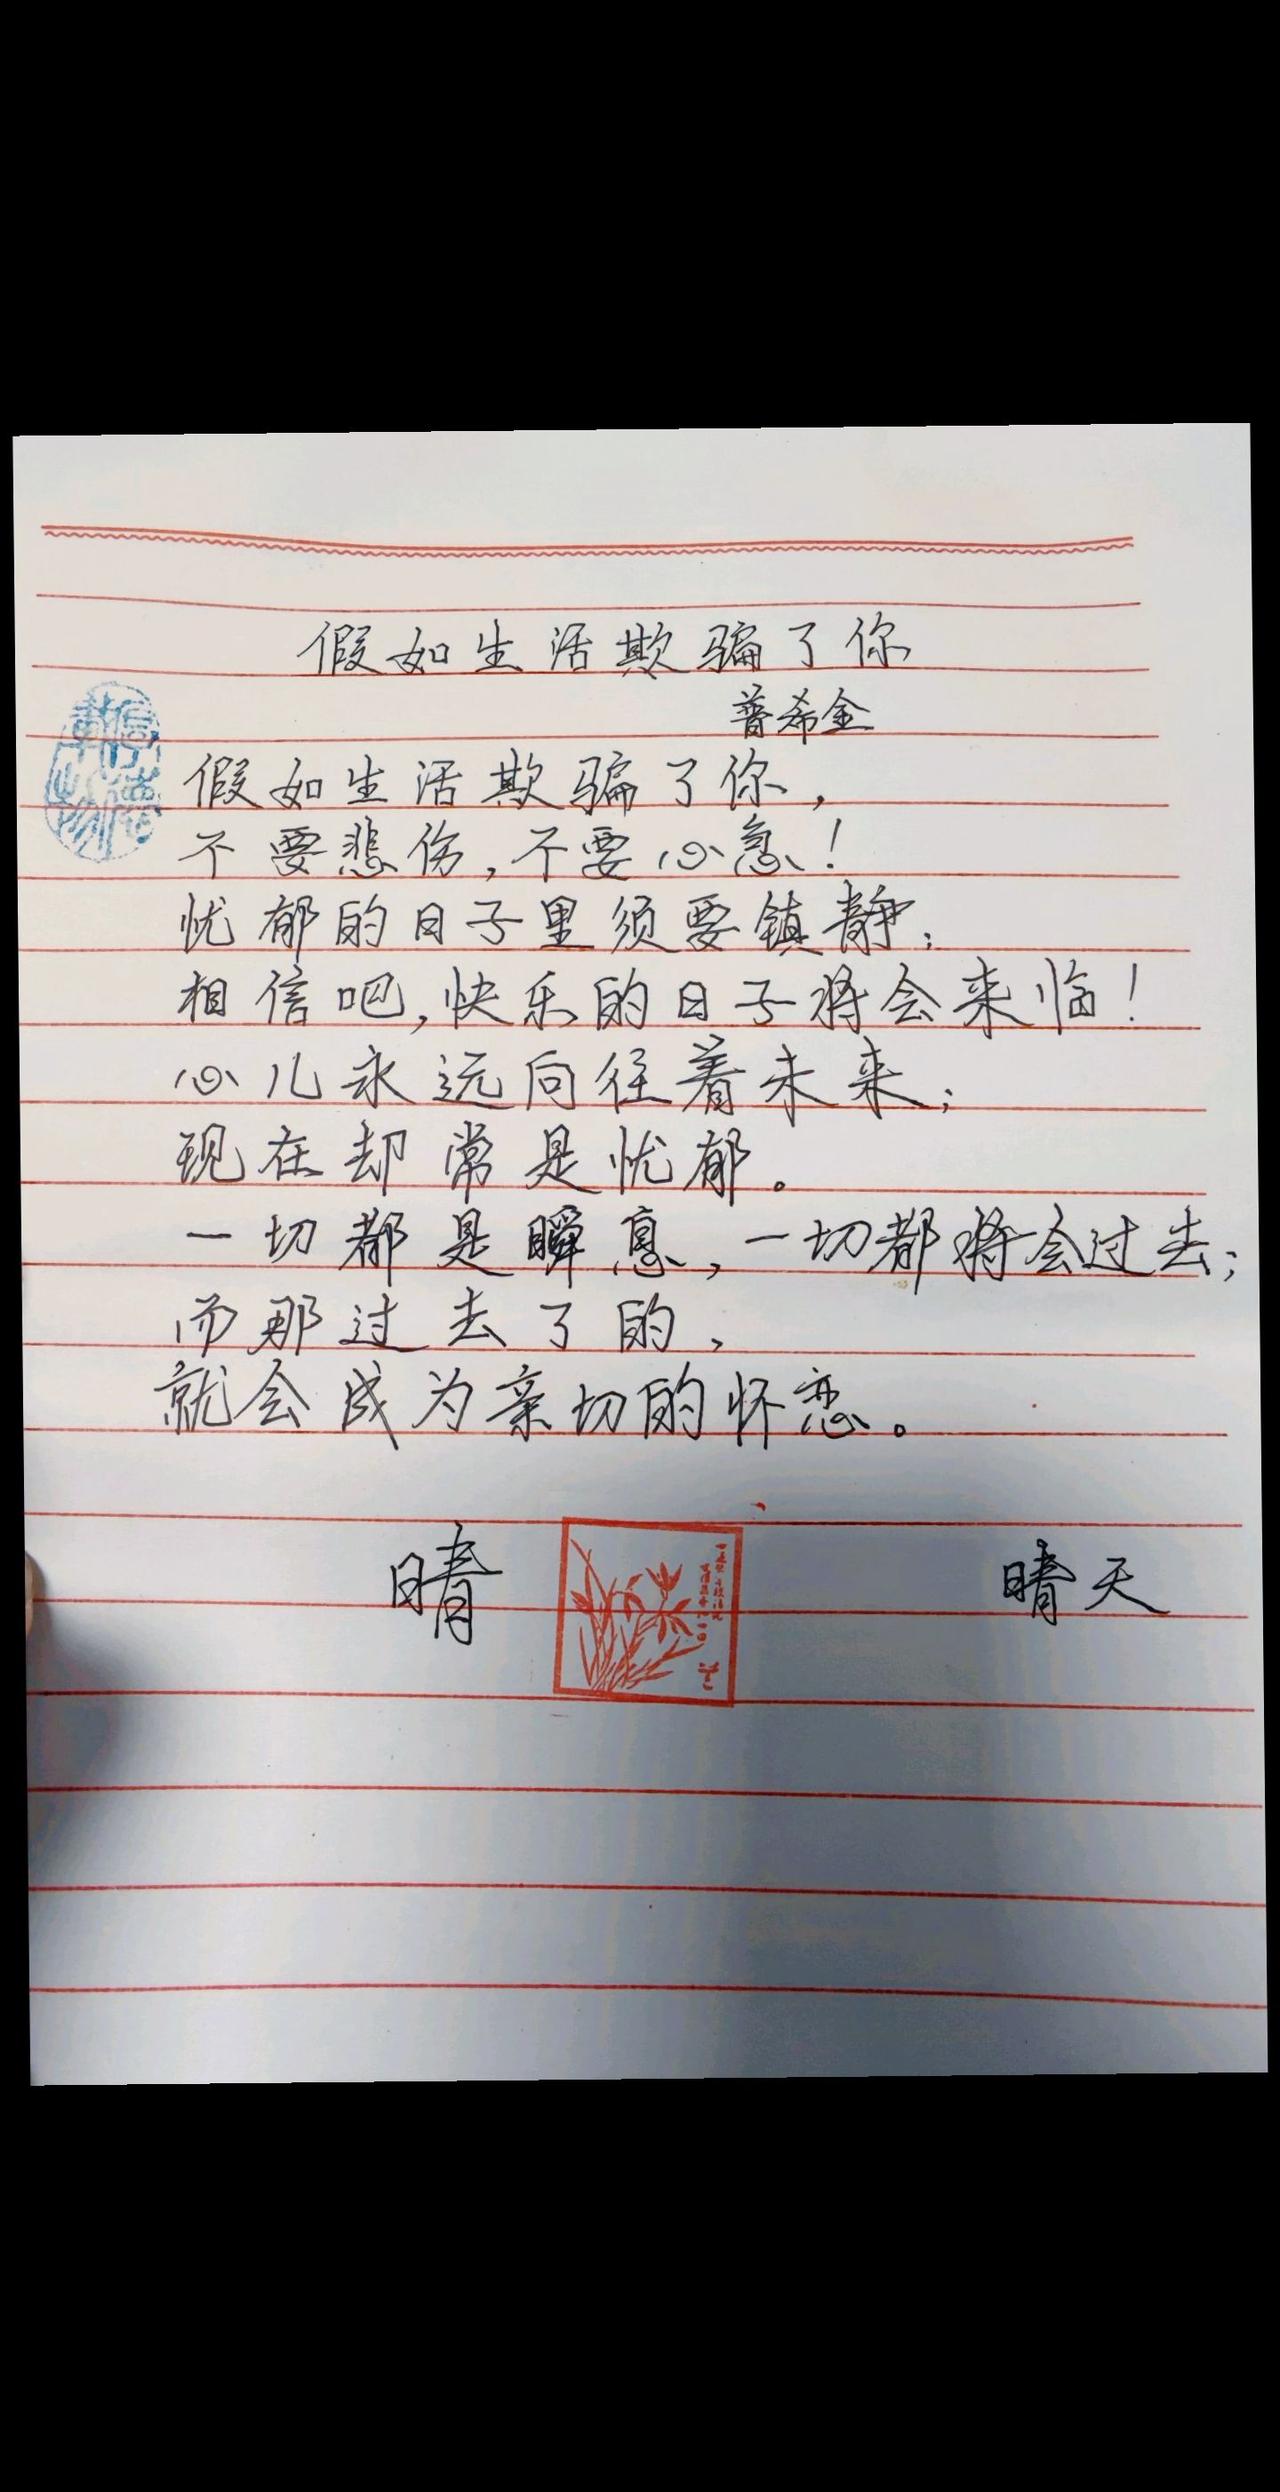 假如生活欺骗了你
普希金
假如生活欺骗了你，
不要悲伤，不要心急！
忧郁的日子里须要镇静；
相信吧，快乐的日子将会来临！
心儿永远向往着未来；
现在却常是忧郁。
一切都是瞬息，一切都将会过去；
而那过去了的，
就会成为亲切的怀恋。
晴
晴天